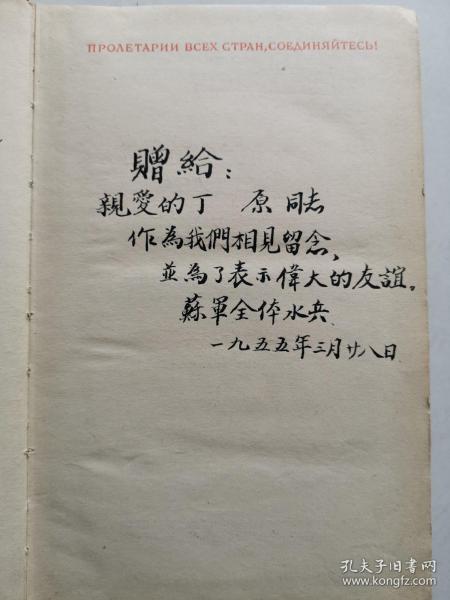 ПРОЛЕТАРИИ ВСЕХ СТРАН, СОЕДИНЯЙТЕСЬ!
贈給：
親愛的丁 原同志
作為我們相見留念，
並為了表示偉大的友誼。
蘇軍全体水兵
一九五五年三月廿八日
孔夫子旧书网
www.kongfz.com